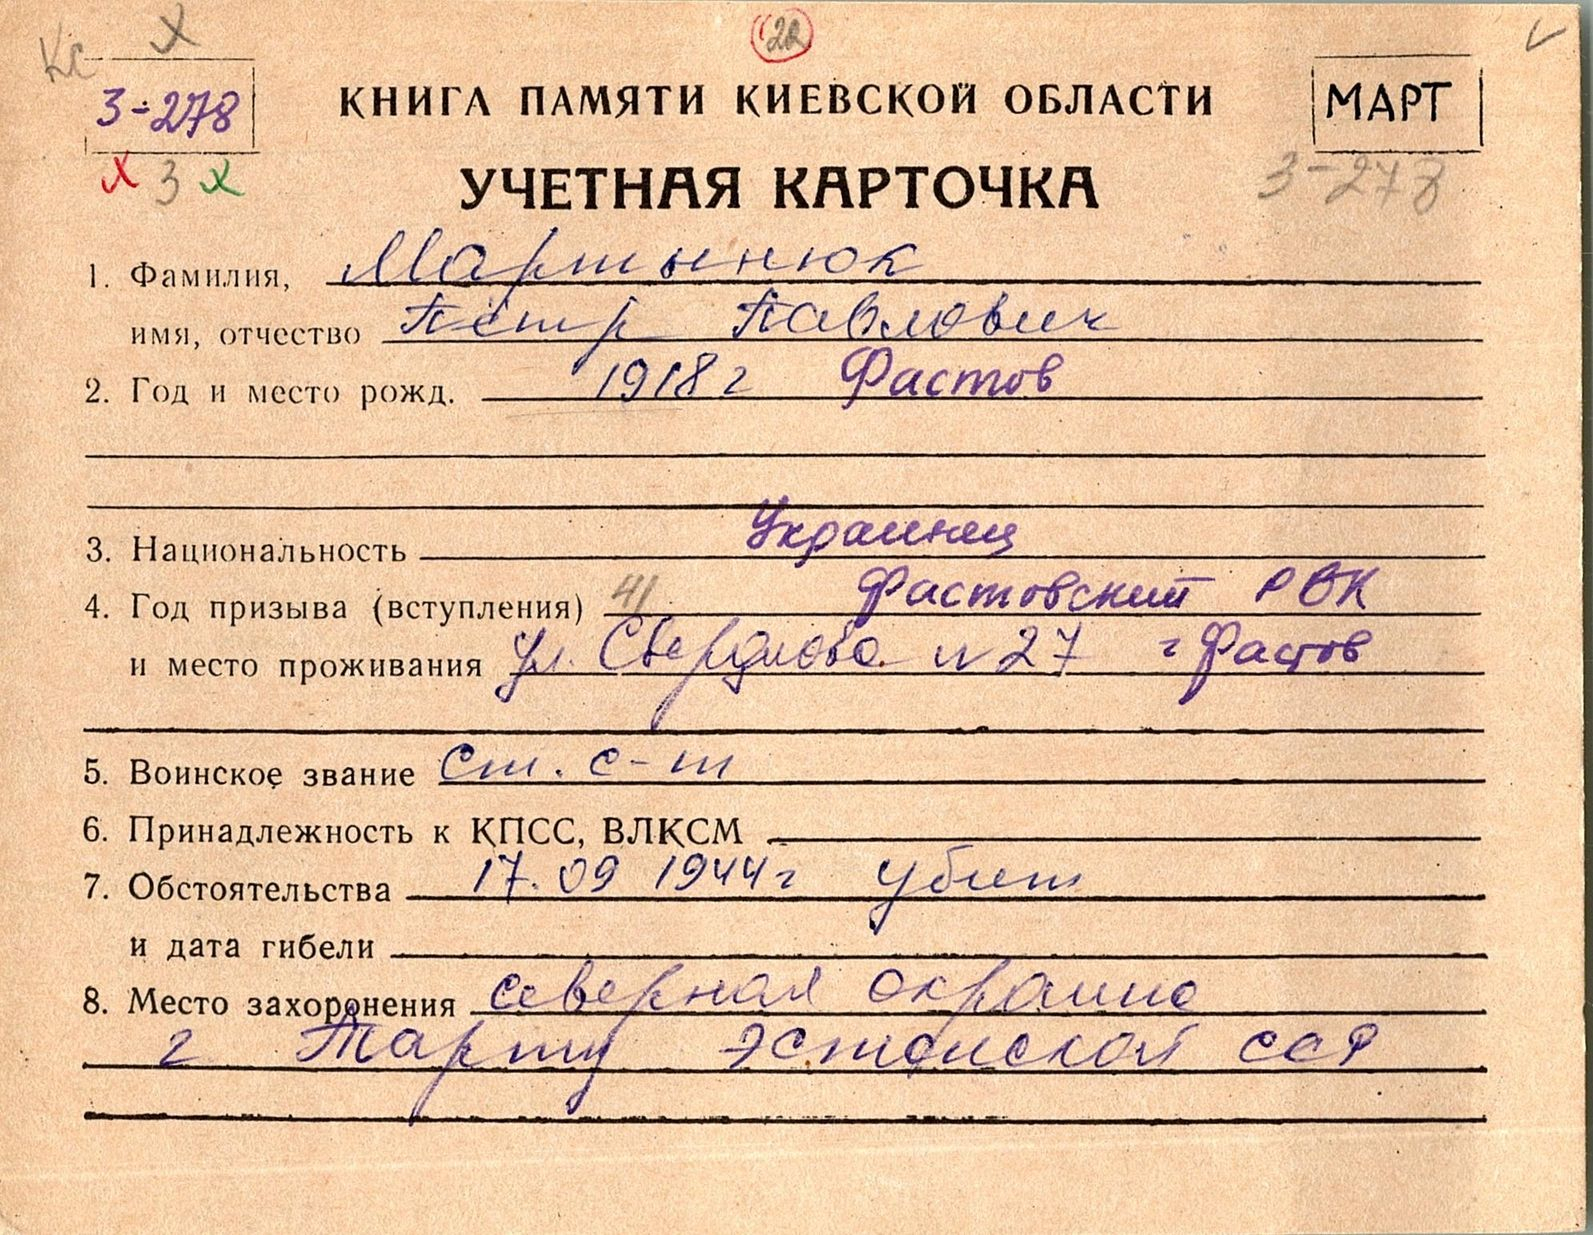 Кс Х
22
3-278
КНИГА ПАМЯТИ КИЕВСКОЙ ОБЛАСТИ
МАРТ
х 3 х
УЧЕТНАЯ КАРТОЧКА
3-278
1. Фамилия, Мартынюк
имя, отчество Пётр Павлович
2. Год и место рожд. 1918 г Фастов
3. Национальность Украинец
4. Год призыва (вступления) 41 Фастовский РВК
и место проживания ул. Свердлова N 27 г Фастов
5. Воинское звание Ст. с-т
6. Принадлежность к КПСС, ВЛКСМ
7. Обстоятельства 17.09 1944 г убит
и дата гибели
8. Место захоронения северная окраина
г Тарту Эстонской ССР